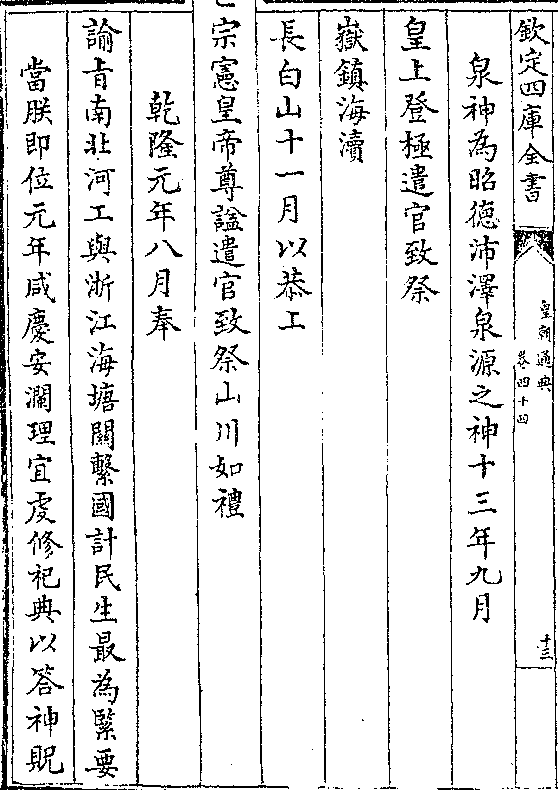 欽定四庫全書
皇朝通典
卷四十四
十三
泉神為昭德沛澤泉源之神十三年九月
皇上登極遣官致祭
嶽鎮海瀆
長白山十一月以恭工
宗憲皇帝尊諡遣官致祭山川如禮
乾隆元年八月奉
諭旨南北河工與浙江海塘關繫國計民生最為緊要
當朕即位元年咸慶安瀾理宜虔修祀典以答神貺